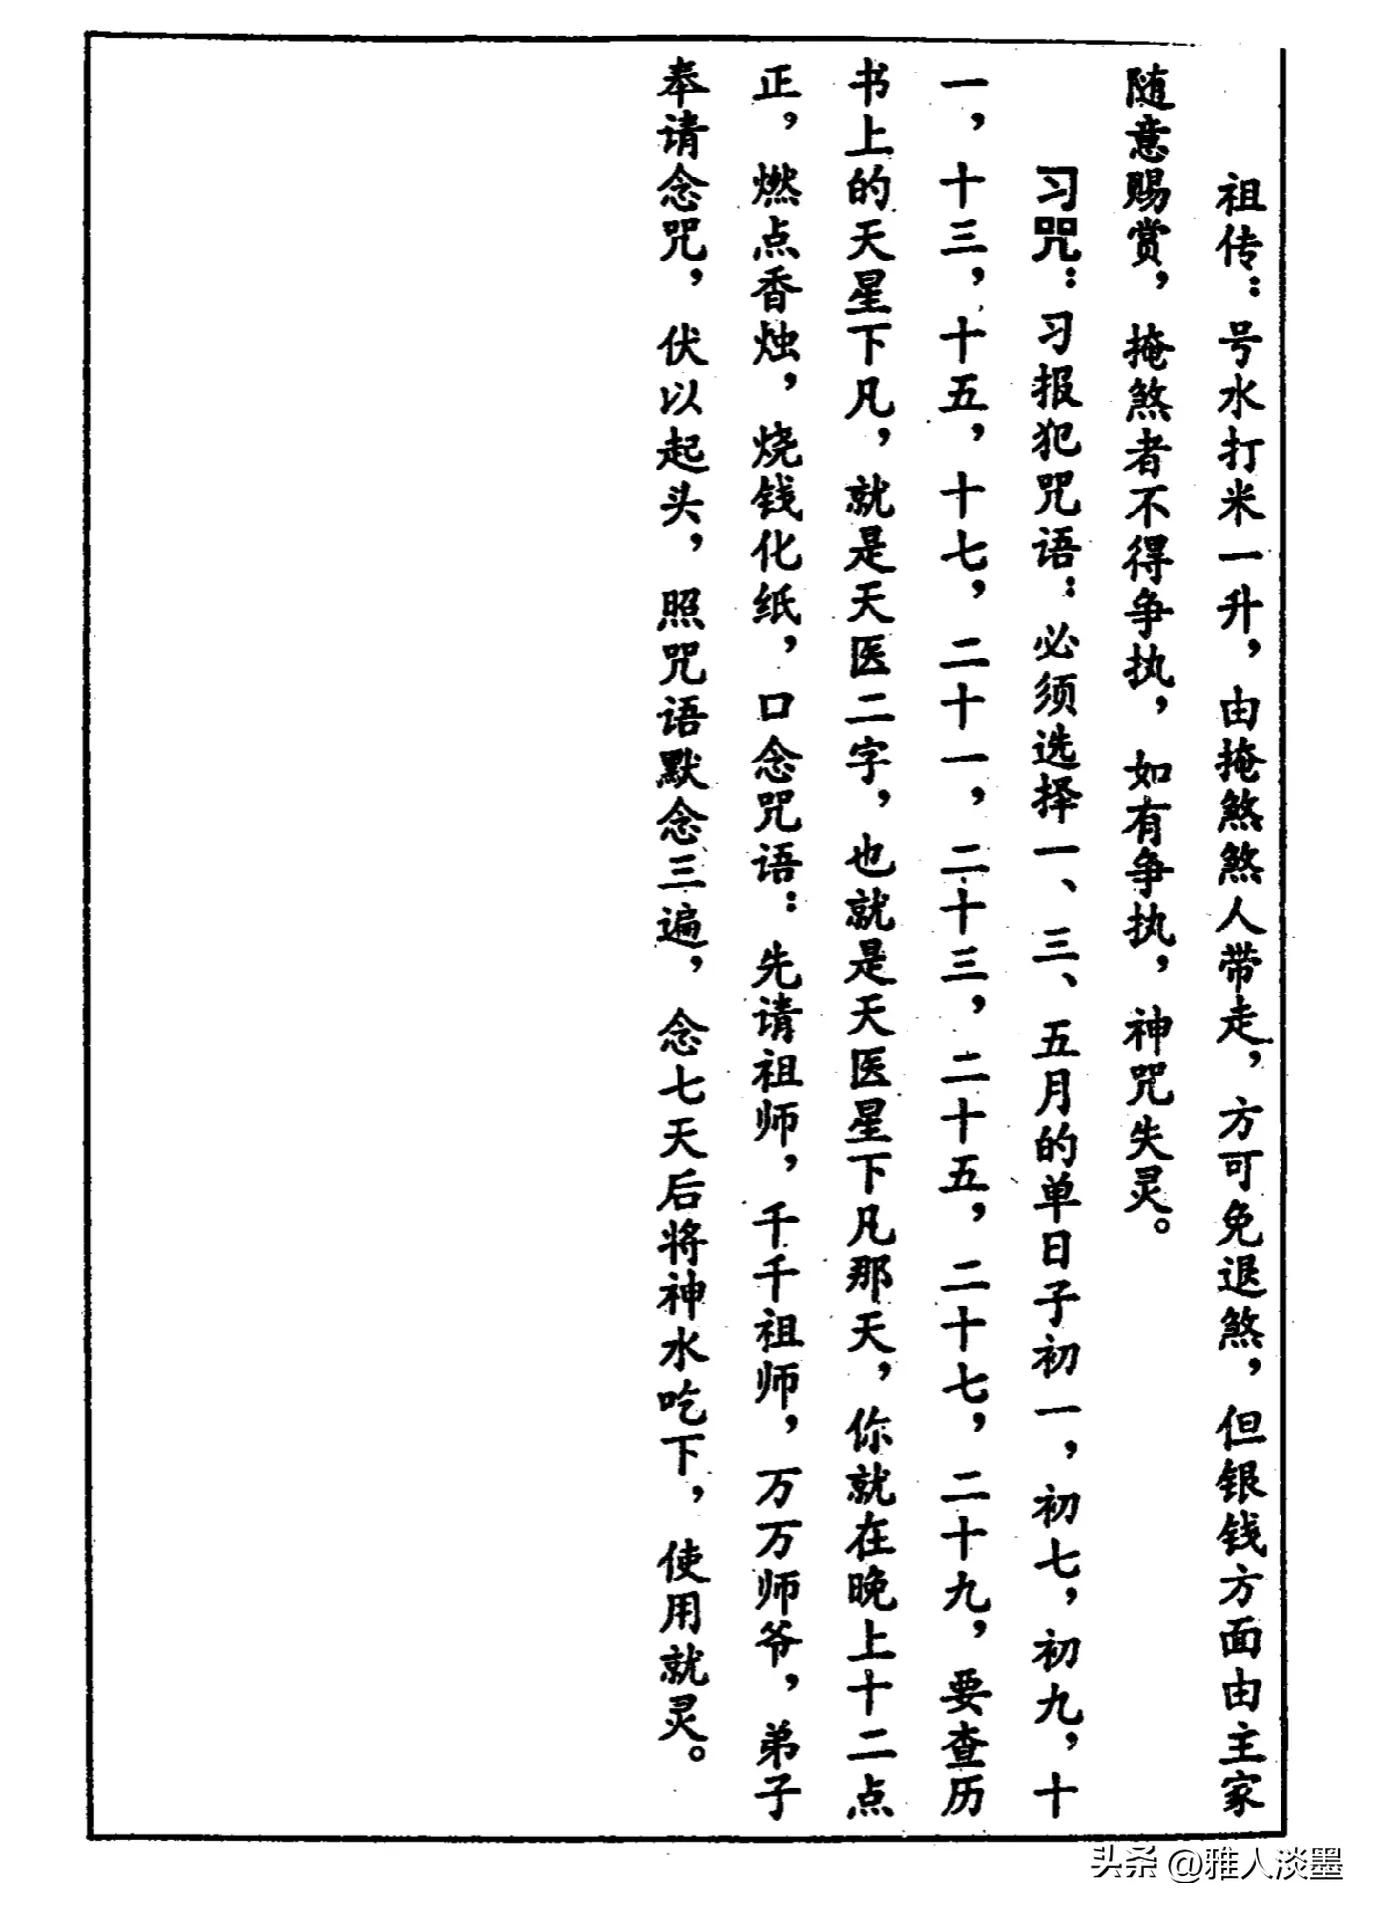 祖传：号水打米一升，由掩煞煞人带走，方可免退煞，但银钱方面由主家
随意赐赏，掩煞者不得争执，如有争执，神咒失灵。
习咒：习报犯咒语：必须选择一、三、五月的单日子初一，初七，初九，十
一，十三，十五，十七，二十一，二十三，二十五，二十七，二十九，要查历
书上的天星下凡，就是天医二字，也就是天医星下凡那天，你就在晚上十二点
正，燃点香烛，烧钱化纸，口念咒语：先请祖师，千千祖师，万万师爷，弟子
奉请念咒，伏以起头，照咒语默念三遍，念七天后将神水吃下，使用就灵。
头条 @雅人淡墨